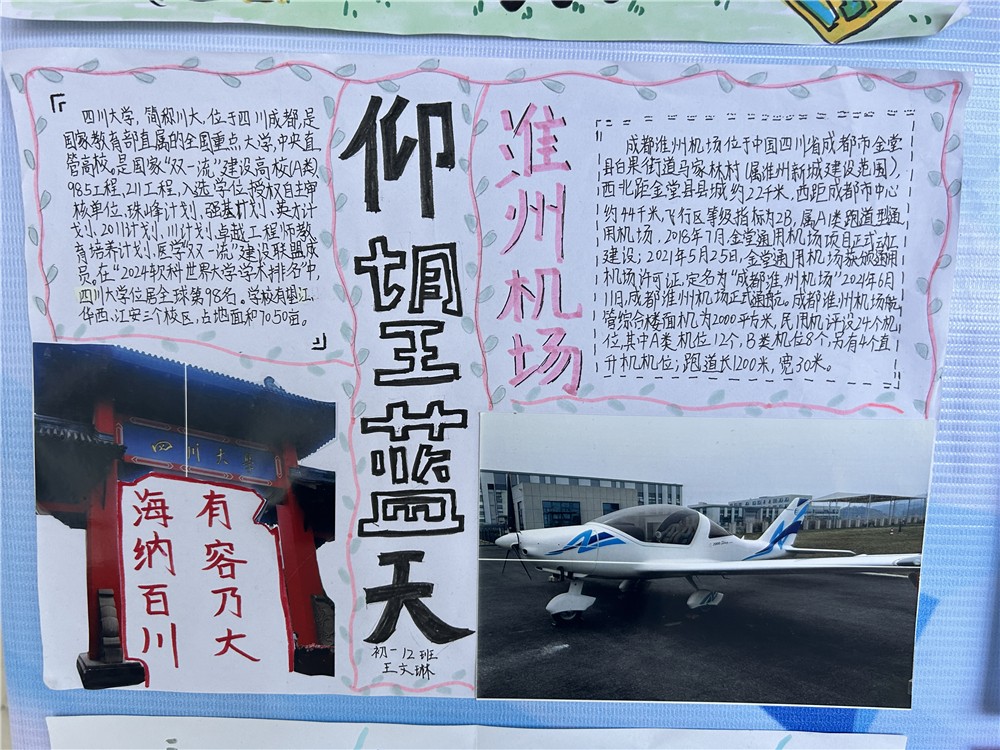 四川大学，简称川大，位于四川成都，是
国家教育部直属的全国重点大学，中央直
管高校，是国家“双一流”建设高校(A类)，
985工程，211工程，入选学位授权自主审
核单位、珠峰计划、强基计划、英才计
划、2011计划、111计划、卓越工程师教
育培养计划、医学“双一流”建设联盟成
员。在“2024软科世界大学学术排名”中，
四川大学位居全球第98名。学校有望江、
华西、江安三个校区，占地面积7050亩。
四川大学
有容乃大
海纳百川
仰望蓝天
初一12班
王文琳
淮州机场
成都淮州机场位于中国四川省成都市金堂
县白果街道马家林村(属淮州新城建设范围)，
西北距金堂县县城约22千米，西距成都市中心
约44千米，飞行区等级指标为2B，属A1类跑道型通
用机场，2018年7月，金堂通用机场项目正式动工
建设；2021年5月25日，金堂通用机场获颁通用
机场许可证，定名为“成都淮州机场”2024年6月
11日，成都淮州机场正式通航。成都淮州机场航
管综合楼面积为2000平方米，民用机评设24个机
位，其中A类机位12个，B类机位8个，另有4个直
升机机位；跑道长1200米，宽30米。